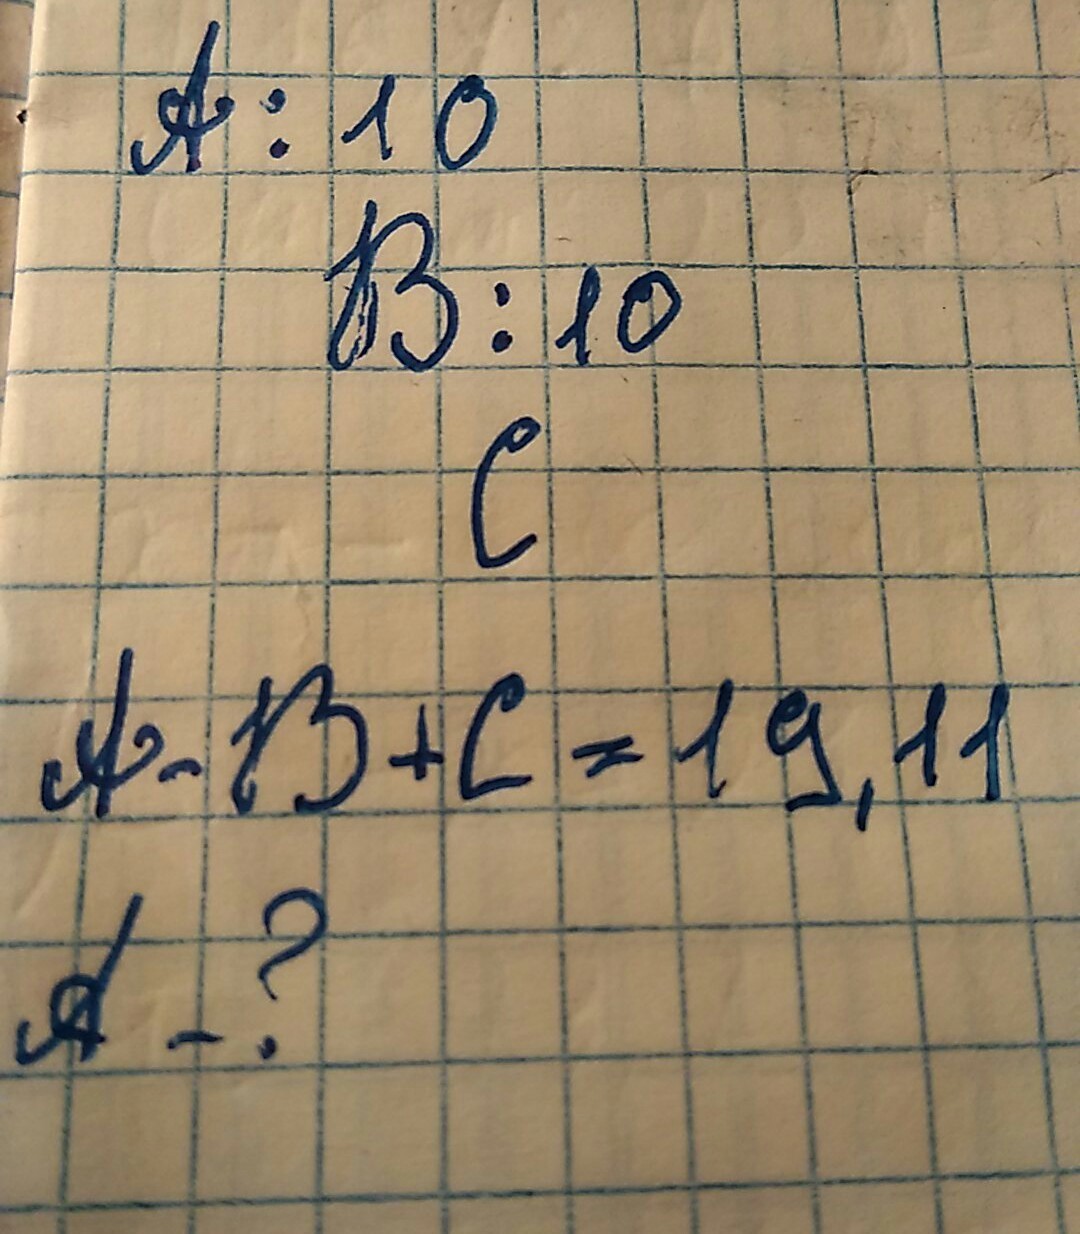 A : 10
B : 10
C
A - B + C = 19,11
A - ?